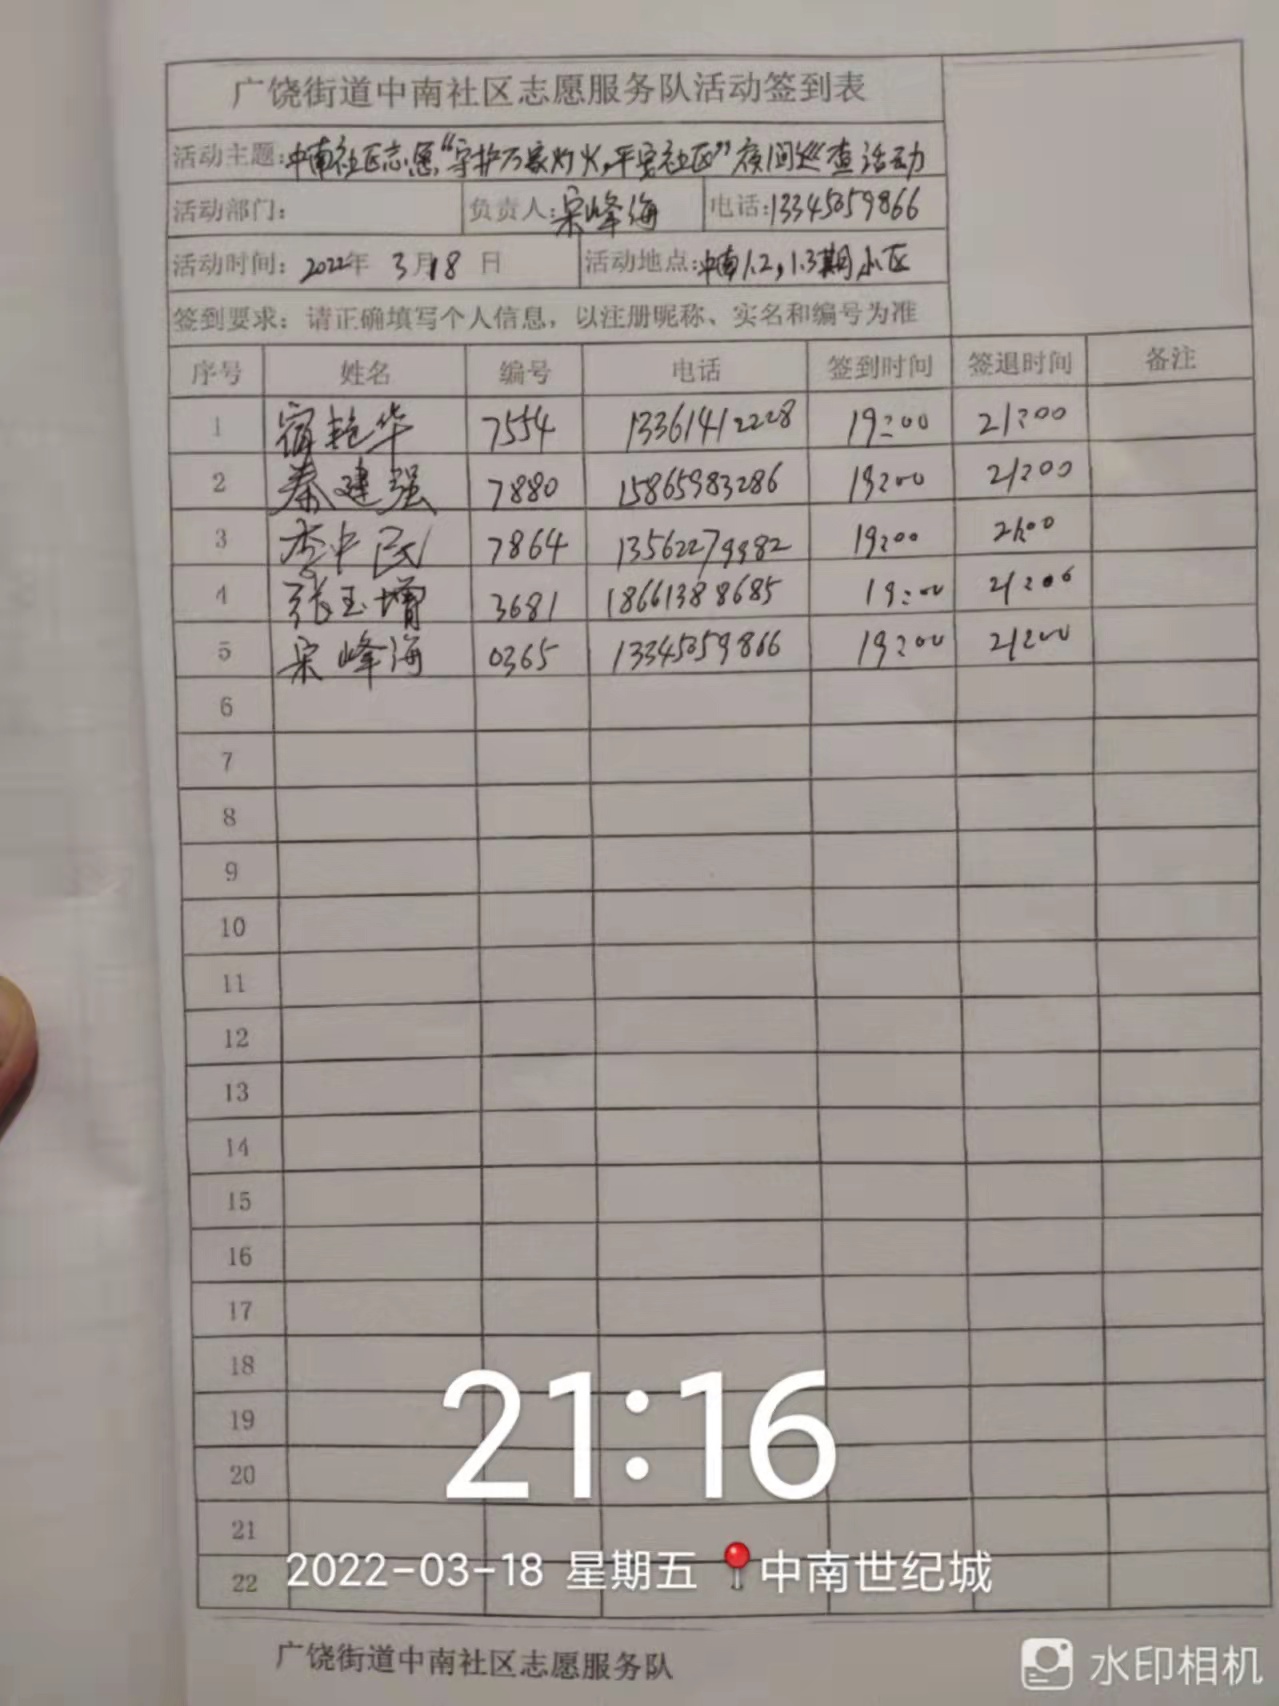 广饶街道中南社区志愿服务队活动签到表
活动主题:中南社区志愿“守护万家灯火,平安社区”夜间巡查活动
活动部门: 负责人:宋峰海 电话:13345059866
活动时间: 2022年 3月18日 活动地点:中南1.2,1.3期小区
签到要求: 请正确填写个人信息, 以注册昵称、实名和编号为准
序号 姓名 编号 电话 签到时间 签退时间 备注
1 宿艳华 7554 13361412228 19:00 21:00
2 秦建强 7880 15865983286 19:00 21:00
3 李中民 7864 13562279982 19:00 21:00
4 张玉增 3681 18661388685 19:00 21:00
5 宋峰海 0365 13345059866 19:00 21:00
6
7
8
9
10
11
12
13
14
15
16
17
18
19
20
21
22
21:16
2022-03-18 星期五 中南世纪城
广饶街道中南社区志愿服务队
水印相机